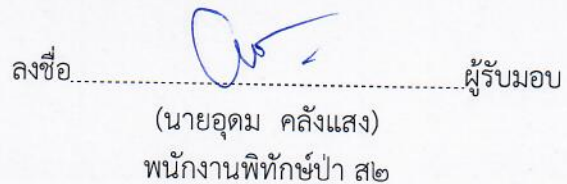 ลงชื่อ........................................................ผู้รับมอบ
(นายอุดม คลังแสง)
พนักงานพิทักษ์ป่า ส๒